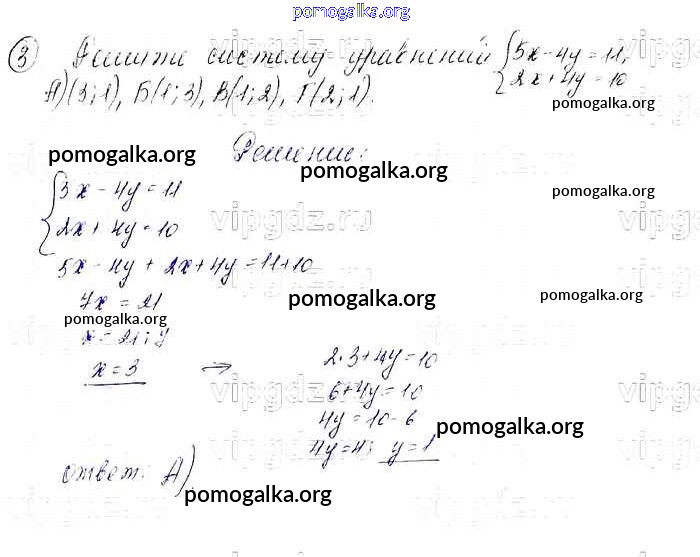 pomogalka.org
③ Решите систему уравнений { 5x - 4y = 11,
2x + 4y = 10
А) (3; 1), Б (1; 3), В (1; 2), Г (2; 1).
pomogalka.org
Решение:
pomogalka.org
pomogalka.org
pomogalka.org
{ 5x - 4y = 11
2x + 4y = 10
vipgdz.ru
5x - 4y + 2x + 4y = 11 + 10
7x = 21
pomogalka.org
pomogalka.org
pomogalka.org
x = 21 : 7
x = 3 →
2·3 + 4y = 10
6 + 4y = 10
vipgdz.ru
4y = 10 - 6
pomogalka.org
4y = 4; y = 1
ответ: А)
pomogalka.org
vipgdz.ru